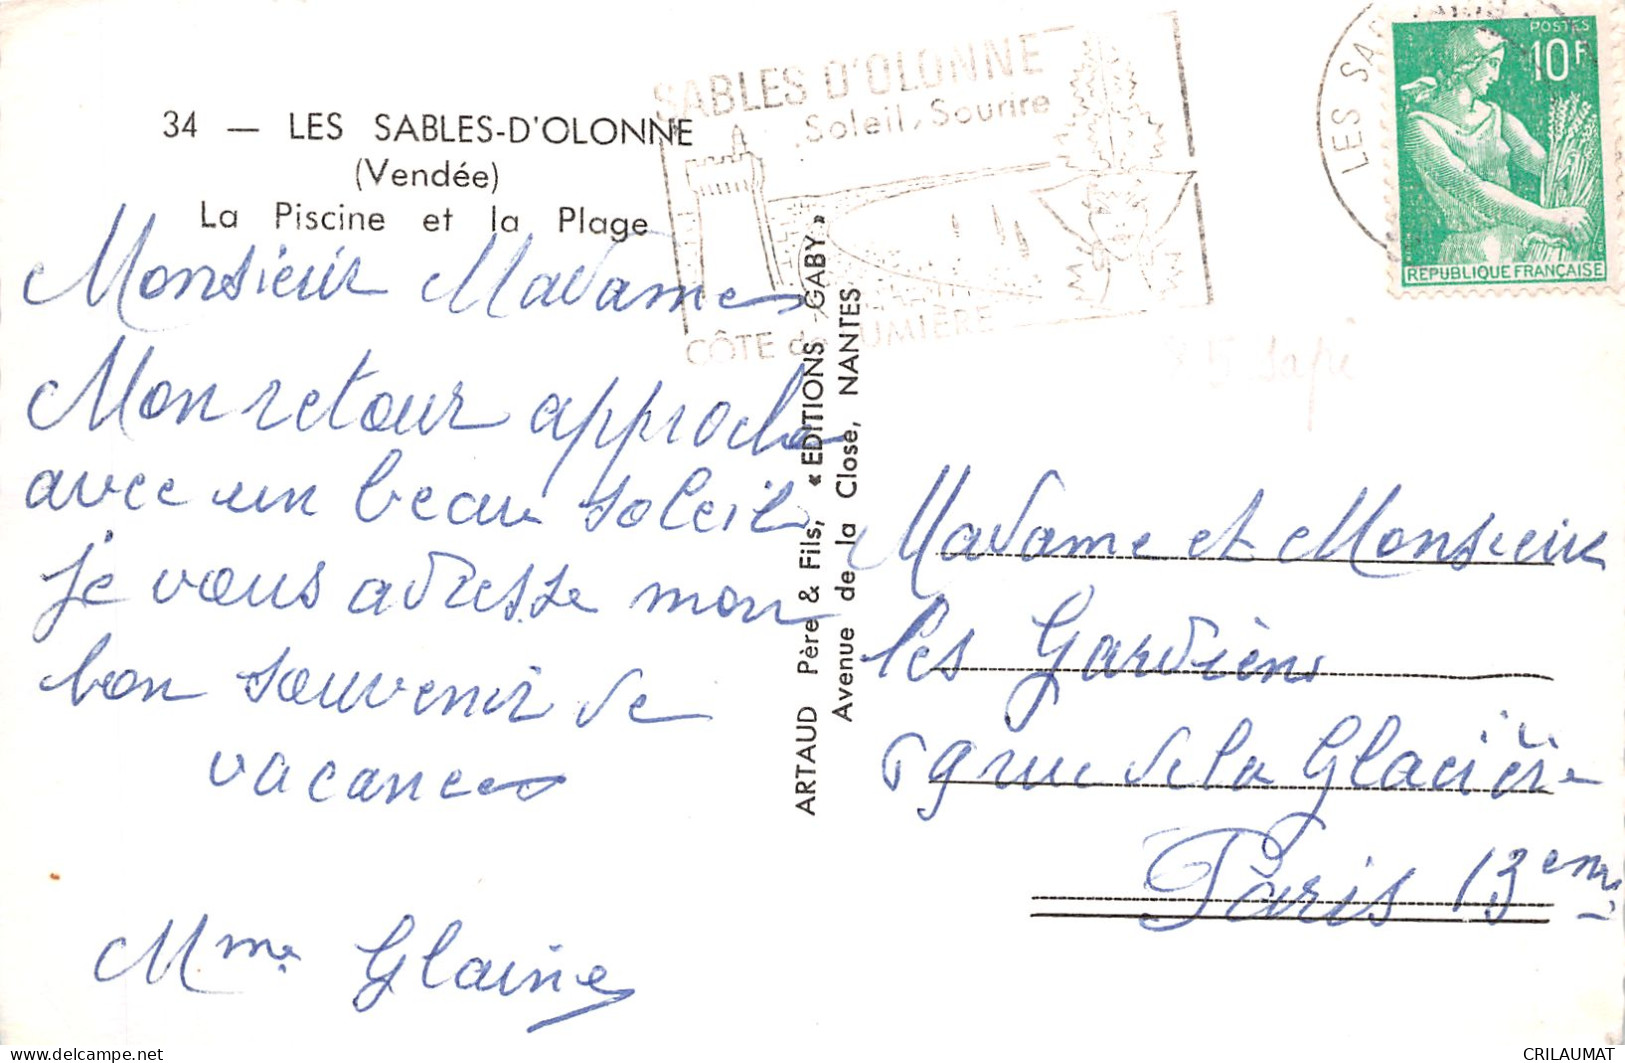 34 — LES SABLES-D'OLONNE
(Vendée)
La Piscine et la Plage
SABLES D'OLONNE
Soleil, Sourire
CÔTE de LUMIÈRE
LES SAB
POSTES
10F
REPUBLIQUE FRANÇAISE
Monsieur Madame
Mon retour approche
avec un beau soleil
je vous adresse mon
bon souvenir de
vacances
Mme Glaine
ARTAUD Père & Fils, « EDITIONS GABY »
Avenue de la Close, NANTES
Madame et Monsieur
les Gardiens
69 rue de la Glacière
Paris 13eme
www.delcampe.net
CRILAUMAT